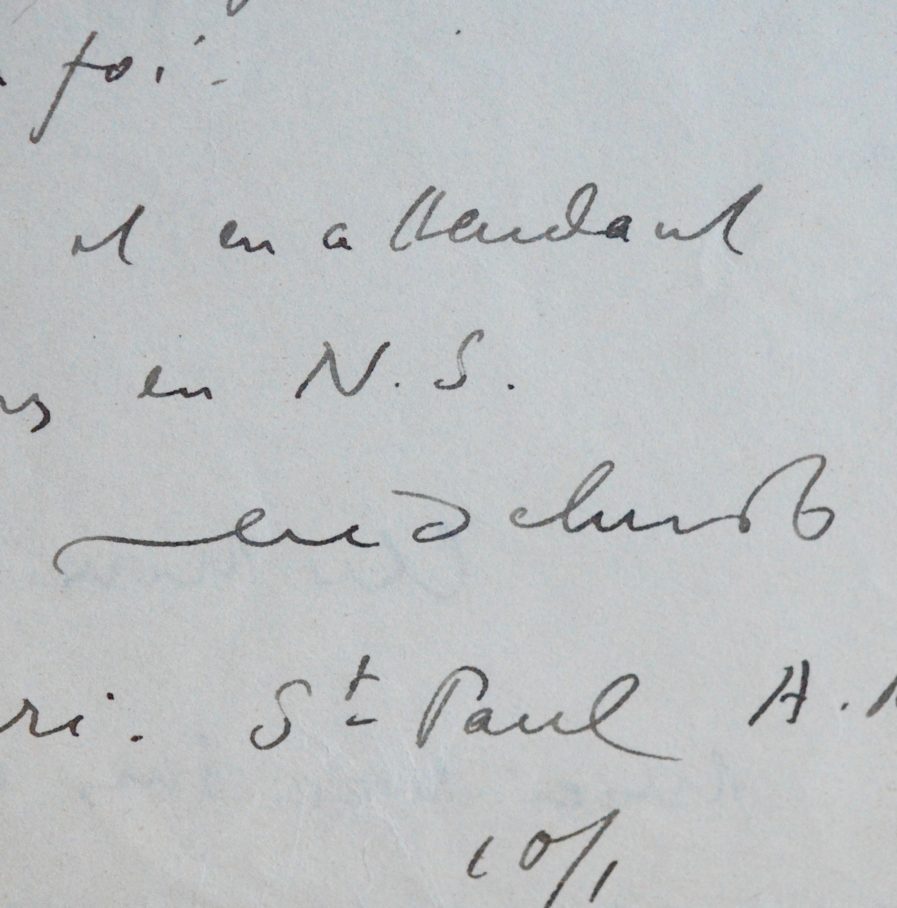 foi.
et en attendant
en N. S.
ri. St Paul A.
10/1